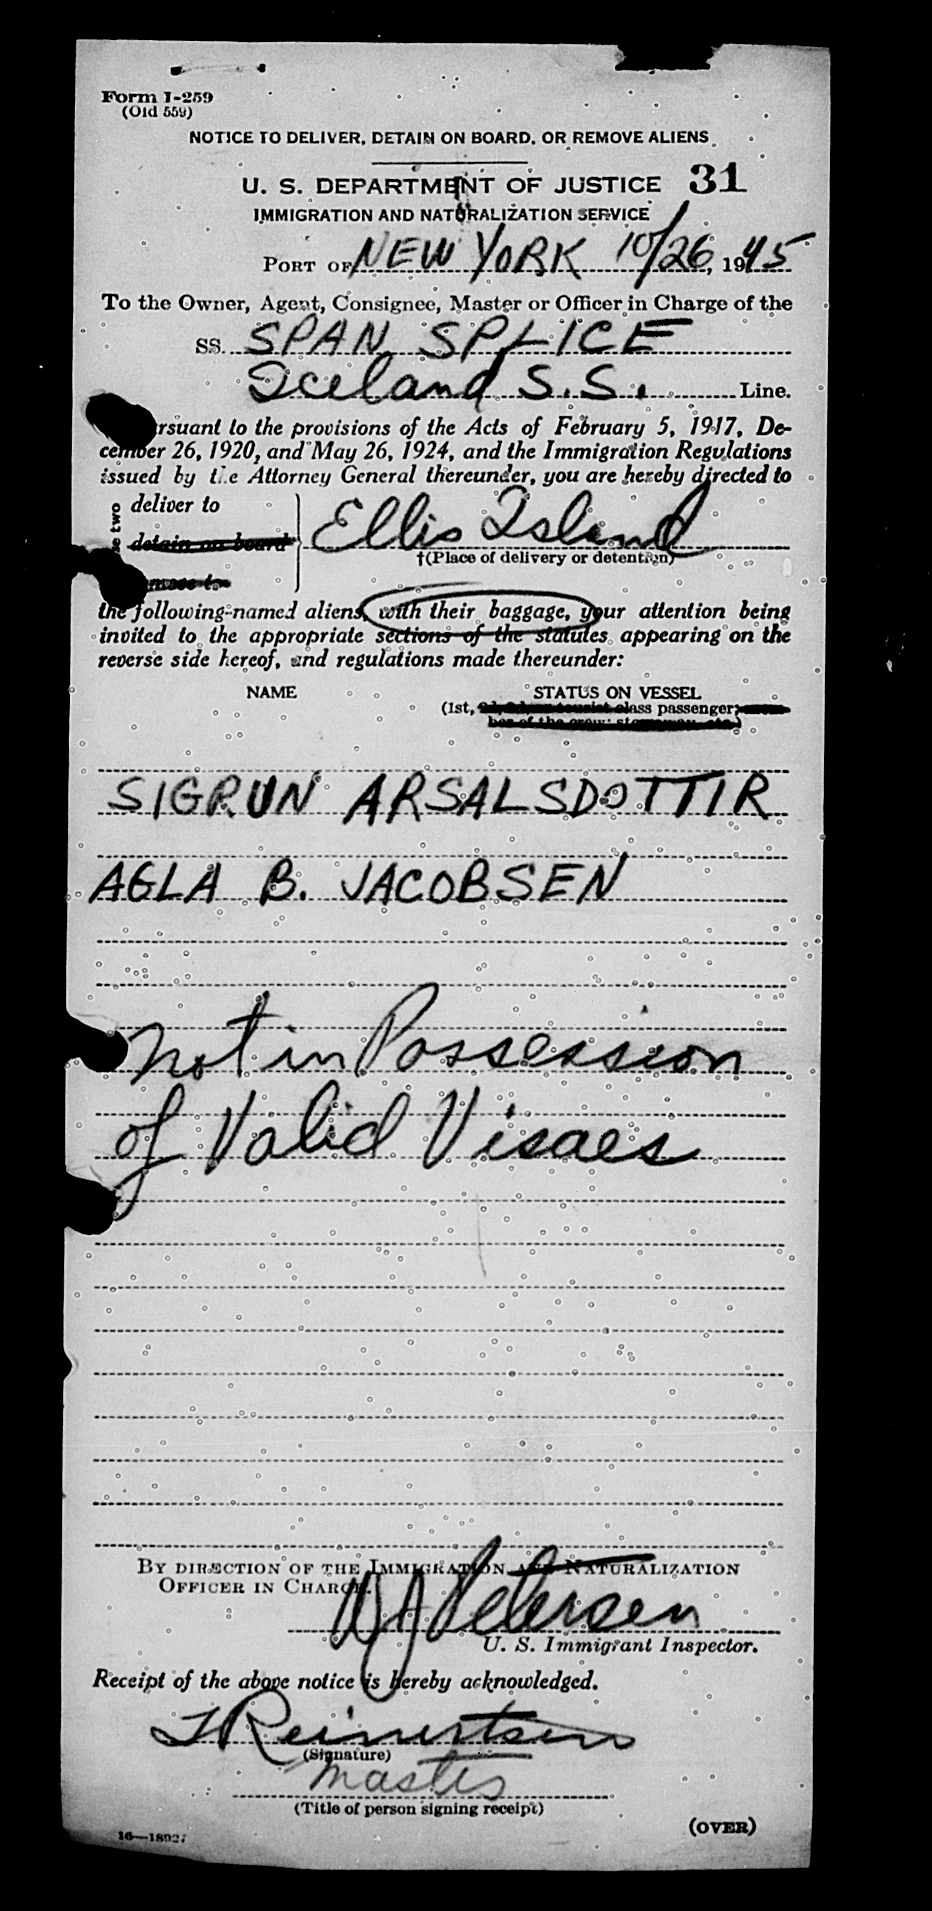 Form I-259
(Old 559)
NOTICE TO DELIVER, DETAIN ON BOARD, OR REMOVE ALIENS
U. S. DEPARTMENT OF JUSTICE 31
IMMIGRATION AND NATURALIZATION SERVICE
PORT OF NEW YORK 10/26, 1945
To the Owner, Agent, Consignee, Master or Officer in Charge of the
SS. SPAN SPLICE
Iceland S.S. Line.
rsuant to the provisions of the Acts of February 5, 1917, De-
cember 26, 1920, and May 26, 1924, and the Immigration Regulations
issued by the Attorney General thereunder, you are hereby directed to
deliver to
detain on board
Ellis Island
†(Place of delivery or detention)
the following-named aliens, with their baggage, your attention being
invited to the appropriate sections of the statutes appearing on the
reverse side hereof, and regulations made thereunder:
NAME STATUS ON VESSEL
(1st, class passenger;
SIGRUN ARSALSDOTTIR
AGLA B. JACOBSEN
not in Possession
of Valid Visaes
BY DIRECTION OF THE IMMIGRATION AND NATURALIZATION
OFFICER IN CHARGE.
Petersen
U. S. Immigrant Inspector.
Receipt of the above notice is hereby acknowledged.
T Reinertsen
(Signature)
master
(Title of person signing receipt)
(OVER)
16—18927